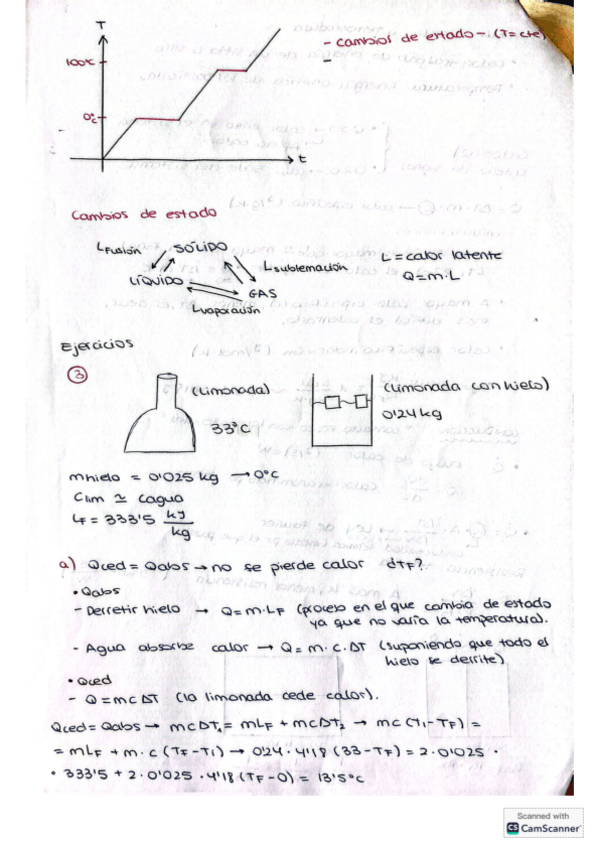 T
- cambios de estado - (T = cte)
-
100°C
0°c
t
Cambios de estado
LFusión
SÓLIDO
L = calor latente
Lsublemación
Q = m·L
LÍQUIDO
GAS
Lvaporación
Ejercicios
③
(Limonada)
33°C
(Limonada con hielo)
0'24 kg
mhielo = 0'025 kg → 0°C
Clim ≃ cagua
LF = 333'5 kj/kg
a) Qced = Qabs → no se pierde calor ¿TF?
• Qabs
- Derretir hielo → Q = m·LF (proceso en el que cambia de estado
ya que no varía la temperatura).
- Agua absorbe calor → Q = m·c·ΔT (suponiendo que todo el
hielo se derrite)
• Qced
- Q = mcΔT (la limonada cede calor).
Qced = Qabs → mcΔT₁ = mLF + mcΔT₂ → mc(T₁-TF) =
= mLF + m·c (TF-Ti) → 0'24 · 4'18 (33-TF) = 2·0'025 ·
· 333'5 + 2·0'025 · 4'18 (TF-0) = 13'5°C
Scanned with
CS CamScanner